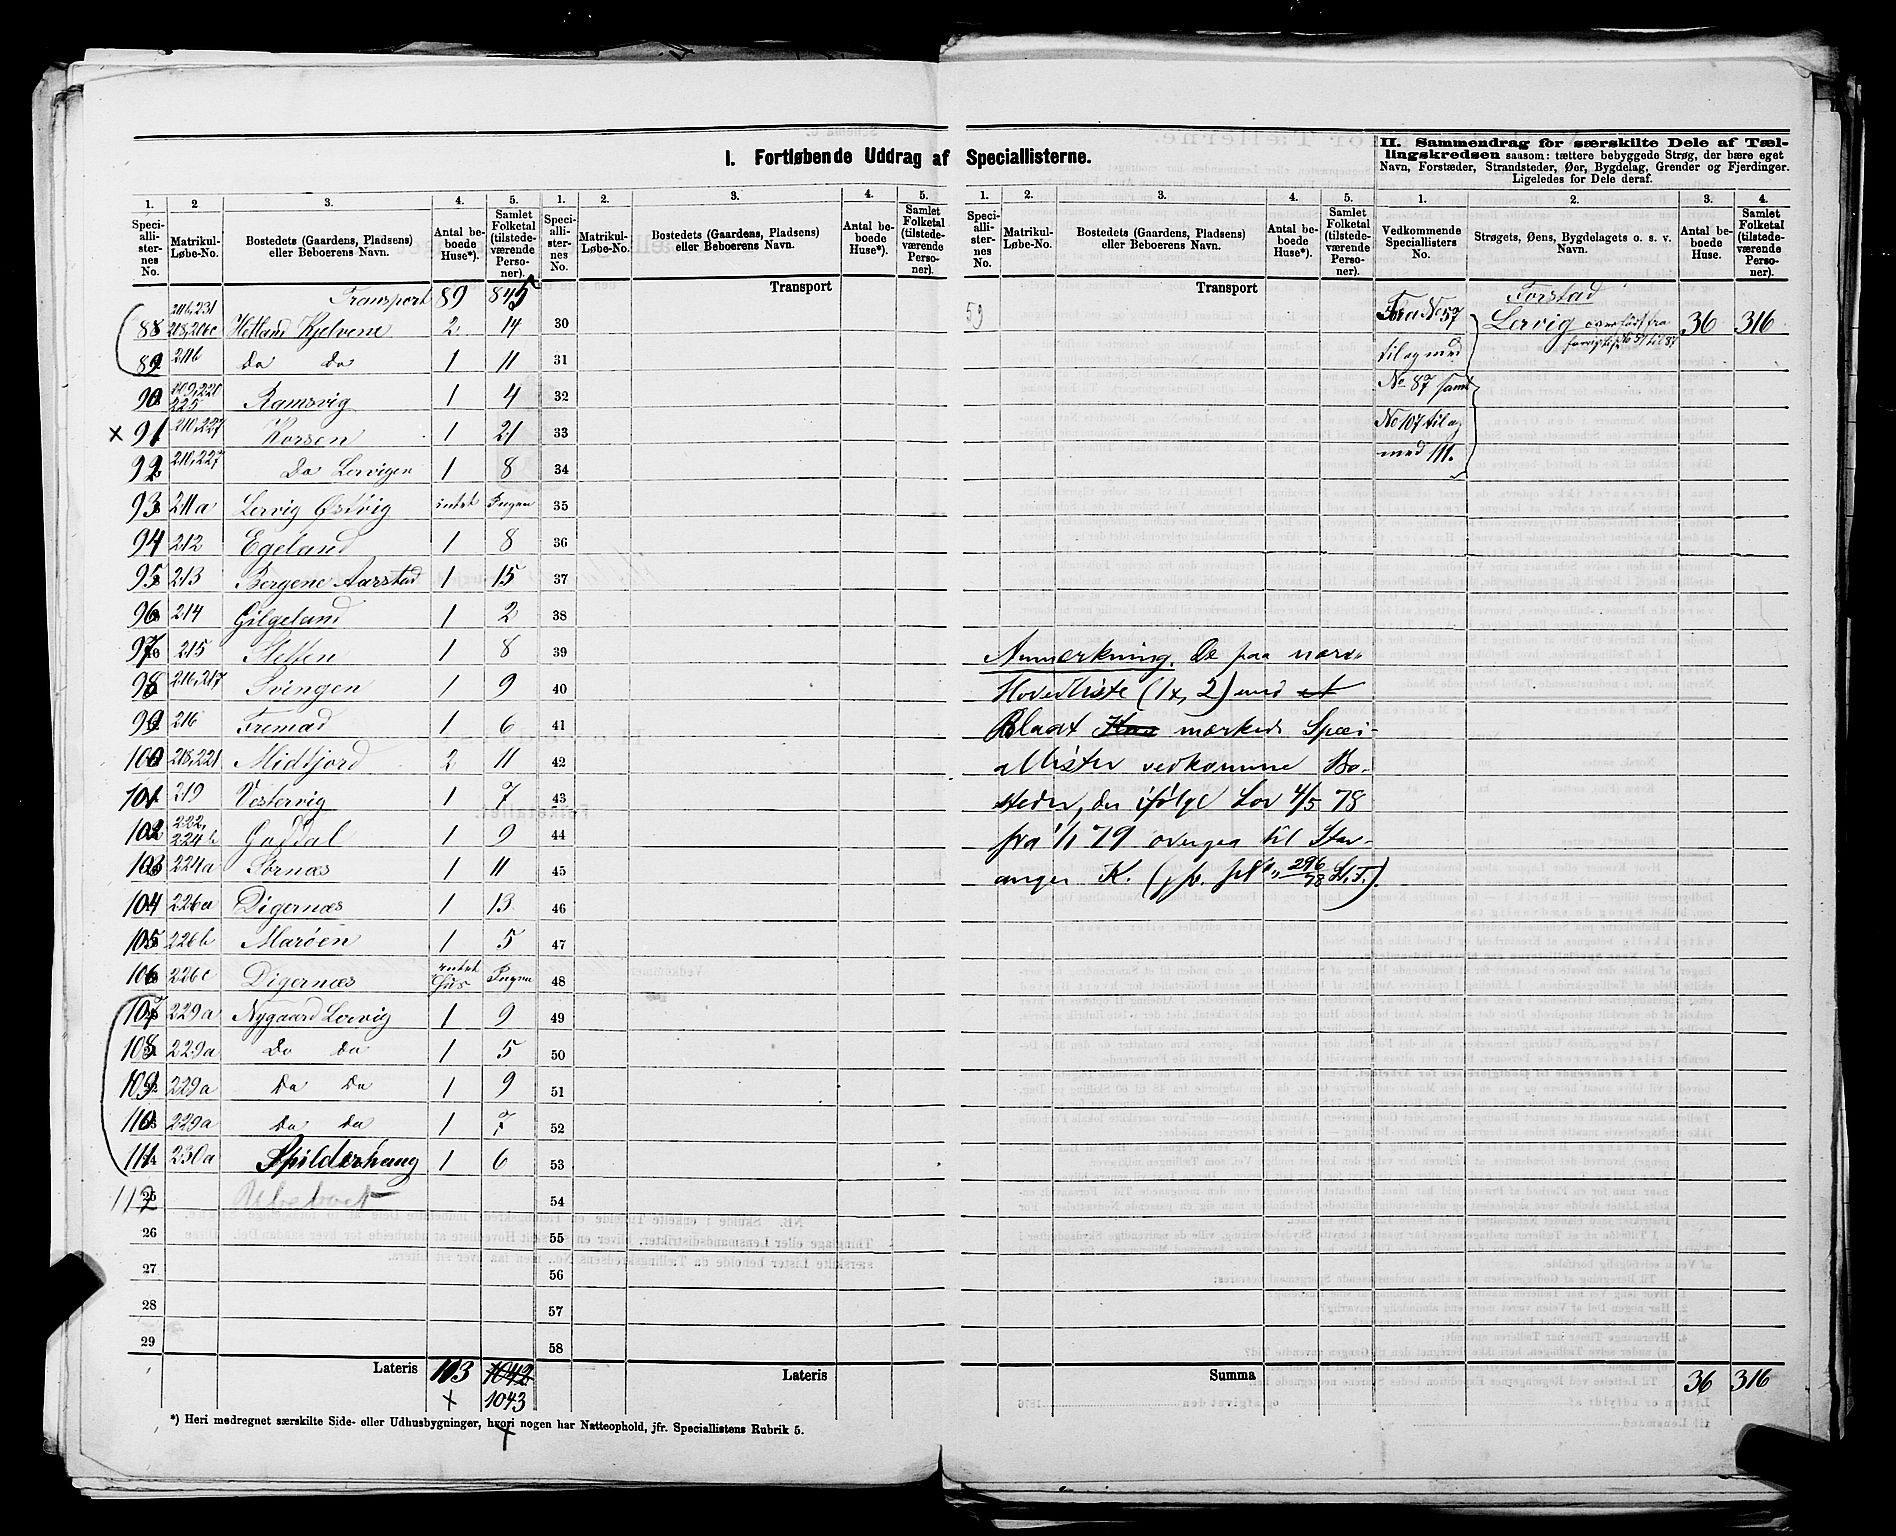 I. Fortløbende Uddrag af Speciallisterne.
II. Sammendrag for særskilte Dele af Tæl-
lingskredsen saasom: tættere bebyggede Strøg, der bære eget
Navn, Forstæder, Strandsteder, Øer, Bygdelag, Grender og Fjerdinger.
Ligeledes for Dele deraf.
1. 2 3. 4. 5.
Speciallisternes No. Matrikul-Løbe-No. Bostedets (Gaardens, Pladsens) eller Beboerens Navn. Antal beboede Huse*). Samlet Folketal (tilstedeværende Personer).
Transport 89 845
88 Hetland Kjelvene 2 14
89 211b Do Do 1 11
90 225 Ramsvig 1 4
x 91 210,227 Korsen 1 21
92 210,227 Do Lervigen 1 8
93 211a Lervig Østvig intet Ingen
94 212 Egeland 1 8
95 213 Bergene Aarstad 1 15
96 214 Gilgeland 1 2
97 215 Sletten 1 8
98 216,217 Svingen 1 9
99 216 Fremad 1 6
100 218,221 Midtjord 2 11
101 219 Vestervig 1 7
102 222, 224b Godal 1 9
103 224a Sørnæs 1 11
104 226a Digernæs 1 13
105 226b Marøen 1 5
106 226c Digernæs intet Hus Ingen
107 229a Nygaard Lervig 1 9
108 229a Do Do 1 5
109 229a Do Do 1 9
110 229a Do Do 1 7
111 230a Spilderhaug 1 6
112 25
26
27
28
29
Lateris 103 1042
x 1043
*) Heri medregnet særskilte Side- eller Udhusbygninger, hvori nogen har Natteophold, jfr. Speciallistens Rubrik 5.
1. 2. 3. 4. 5.
Speciallisternes No. Matrikul-Løbe-No. Bostedets (Gaardens, Pladsens) eller Beboerens Navn. Antal beboede Huse*). Samlet Folketal (tilstedeværende Personer).
Transport
30
31
32
33
34
35
36
37
38
39
40
41
42
43
44
45
46
47
48
49
50
51
52
53
54
55
56
57
58
Lateris
1. 2. 3. 4. 5.
Speciallisternes No. Matrikul-Løbe-No. Bostedets (Gaardens, Pladsens) eller Beboerens Navn. Antal beboede Huse*). Samlet Folketal (tilstedeværende Personer).
Transport
59
Anmærkning. De paa nærv.
Hovedliste (1x, 2) med
Blaat mærkede Speci-
allister vedkomme Bo-
steder, der ifølge Lov 4/5 78
fra 1/1 79 overgaa til Stav-
anger K.
Summa
1. 2. 3. 4.
Vedkommende Speciallisters No. Strøgets, Øens, Bygdelagets o. s. v. Navn. Antal beboede Huse. Samlet Folketal (tilstedeværende Personer).
Forstad
Fra No 57 Lervig 36 316
til og med
No 87 samt
No 107 til og
med 111.
36 316